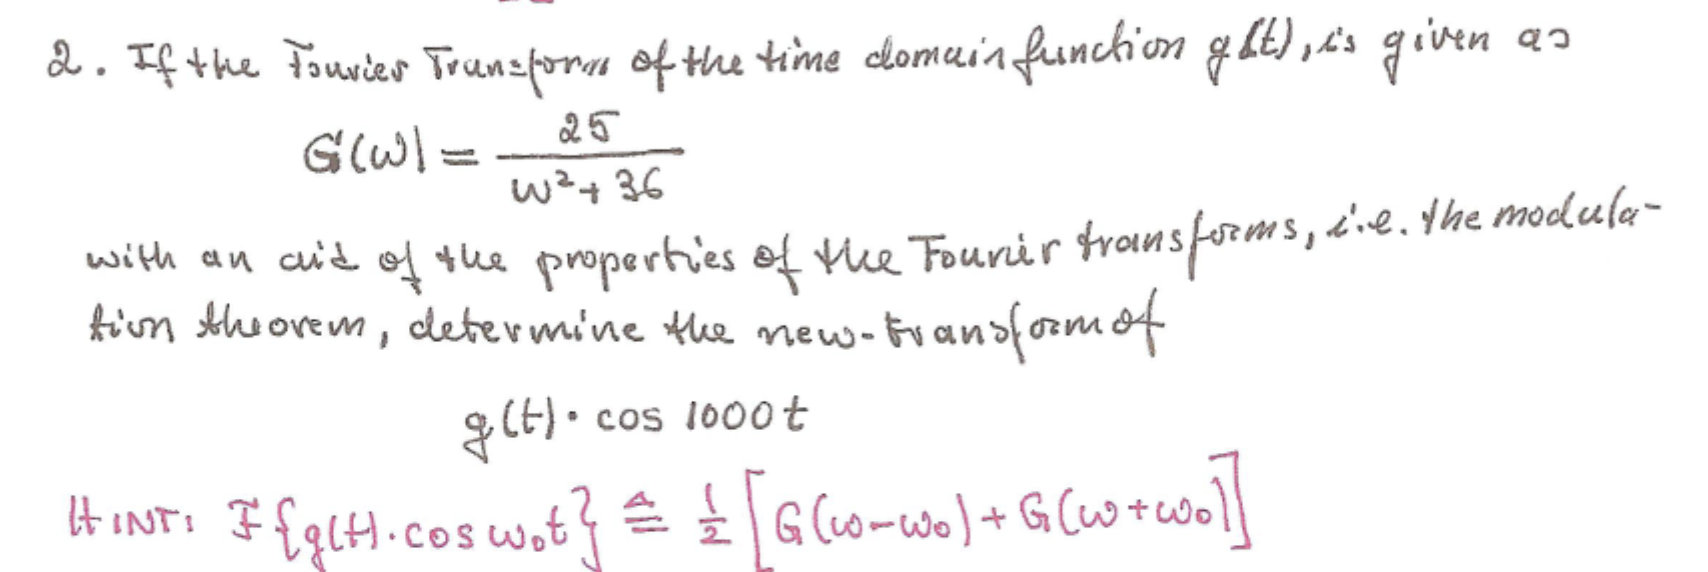 2. If the Fourier Transform of the time domain function g(t), is given as
G(ω) = 25 / (ω² + 36)
with an aid of the properties of the Fourier transforms, i.e. the modula-
tion theorem, determine the new-transform of
g(t) · cos 1000t
HINT: F{g(t).cos ω₀t} ≙ 1/2 [G(ω-ω₀) + G(ω+ω₀)]